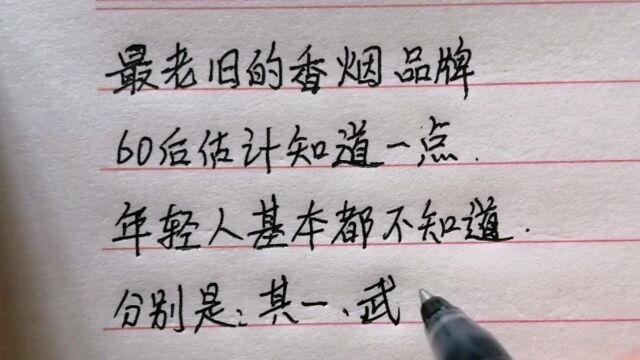 最老旧的香烟品牌
60后估计知道一点.
年轻人基本都不知道.
分别是:其一、武